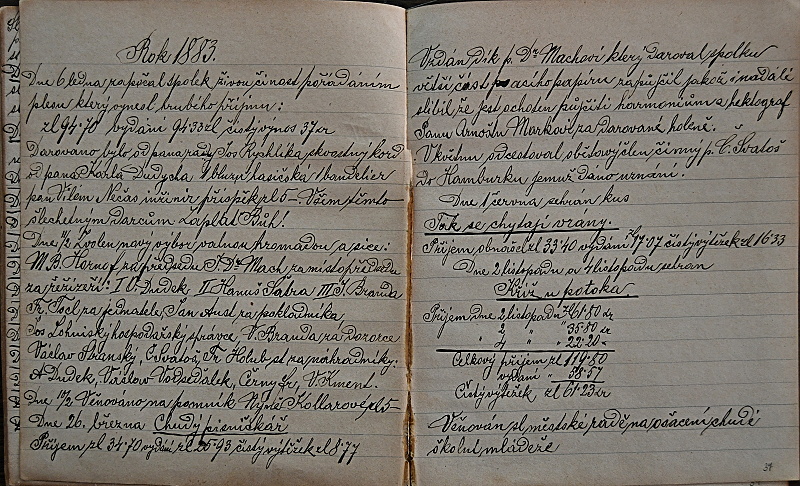 Rok 1883.
Dne 6 ledna započal spolek živou činost pořádáním
plesu který vynesl hrubého příjmu:
zl 94·70 vydání 94·33 zl čistý výnos 37 kr
Darováno bylo od pana rady Jos Rychlíka skvostný kord
od pana Karla Dudycha 1 bluza hasičská 1 bandalier
pan Vilém Nečas inženir příspěk zl 5 – Všem těmto
šlechetným dárcům zaplať Bůh!
Dne 11/2 Zvolen nový výbor valnou hromadou a sice:
M. B. Horný za předsedu J. Dr Mach za místopředsedu
za režiséri: I O. Dudek, II Hanuš Satra III J. Branda
Fr. Tocl za jednatele, Jan Aust za pokladníka
Jos Lohniský hospodářský správce V. Branda za dozorce
Václav Stránský, C. Svatoš, Fr. Holub st za náhradníky:
A Dudek, Václav Vodseďálek, Černý Fr, V. Kment.
Dne 18/2 Věnováno na pomník Rýně Kollarové zl 5 –
Dne 26. března Chudý písničkář
Příjem zl 34·70 vydání zl 25·93 čistý výtížek zl 8·77
Vzdán dík p. Dr Machovi který daroval spolku
větší část psacího papíru zapůjčil jakož i nadále
slíbil že jest ochoten půjčiti harmonium a hektograf
Panu Arnoštu Markovi za darované holeně.
V květnu odcestoval obětavý člen činný p. Č. Svatoš
do Hamburku jemuž dáno uznání.
Dne 1 června sehrán kus
Tak se chytají vrány.
Příjem obnášel zl 33·40 vydání zl 17·07 čistý výtížek zl 16·33
Dne 2 listopadu a 4 listopadu sehrán
Kříž u potoka.
Příjem dne 2 listopadu zl 61·80 kr
2 " " 35·50 kr
4 " " 22·20 "
Celkový příjem zl 119·80
vydání " 58·57
Čistý výtížek zl 61·23 kr
Věnován sl městské radě na ošacení chudé
školní mládeže
34